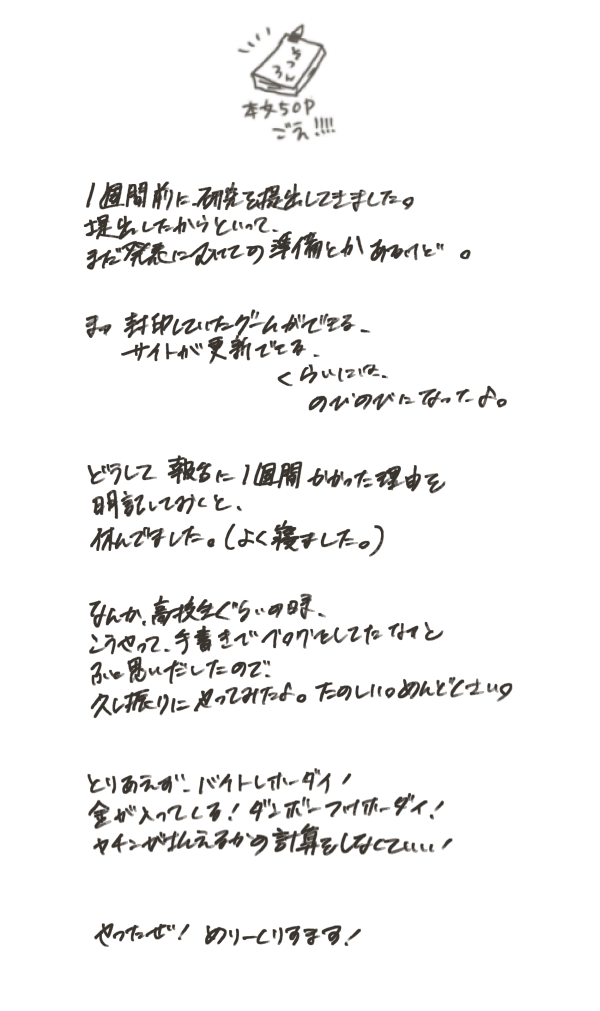 そつろん
本文50P
ごえ!!!!
1週間前に、研究を提出してきました。
提出したからといって、
まだ発表に向けての準備とかあるけど。
まぁ 封印していたゲームができる、
サイトが更新できる、
くらいには、
のびのびになったよ。
どうして 報告に1週間かかった理由を
明記しておくと、
休んでました。(よく寝ました。)
なんか、高校生ぐらいの時、
こうやって、手書きでブログをしてたなぁと
ふと思いだしたので、
久し振りにやってみたよ。たのしい。めんどくさい。
とりあえず、バイトしホーダイ!
金が入ってくる!ダンボールホーダイ!
ヤチンがはらえるかの計算をしなくていい!
やったぜ! めりーくりすます!